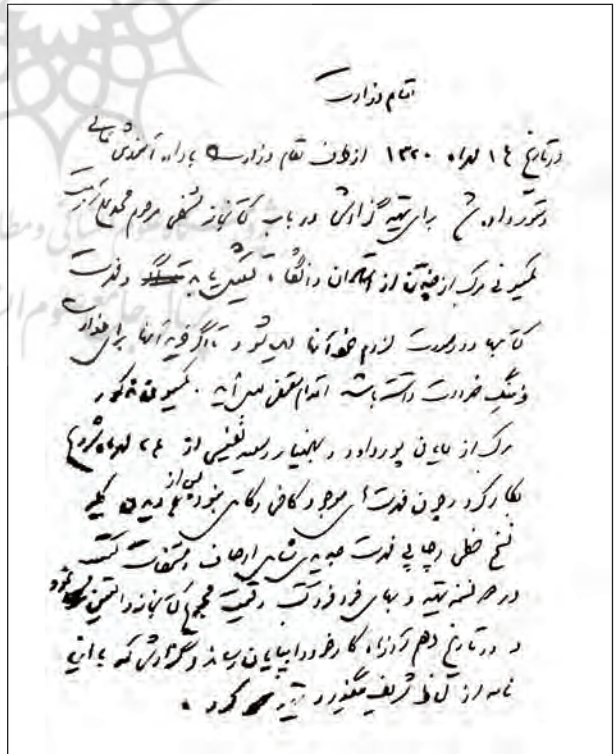 مقام وزارت
در تاریخ ۱۴ مهرماه ۱۳۲۰ از طرف مقام وزارت باداره آموزش عالی
دستور داده شد برای تهیه گزارش در باب کتابخانه شخصی مرحوم محمدعلی تربیت
کمیسیونی مرکب از چند تن از استادان دانشگاه تشکیل یابد و فهرست
کتابها در صورت لزوم خود آنها دیده شود تا اگر خرید آنها برای وزارت
فرهنگ ضرورت داشته باشد اقدام مقتضی بعمل آید. کمیسیون مذکور
مرکب از آقایان پورداود و بهمنیار و سعید نفیسی از ۲۴ مهرماه شروع
بکار کرد و چون فهرستهای موجود کافی و کامل نبود پس از دیدن کلیه
نسخ خطی و چاپی فهرست جدیدی شامل اوصاف و مشخصات کتب
در سه نسخه تهیه و بهای فرد فرد کتب و قیمت مجموع کتابخانه را تعیین نمود
و در تاریخ دهم آذرماه کار خود را بپایان رساند و گزارش که با این
نامه از لحاظ شریف میگذرد تهیه کرد.